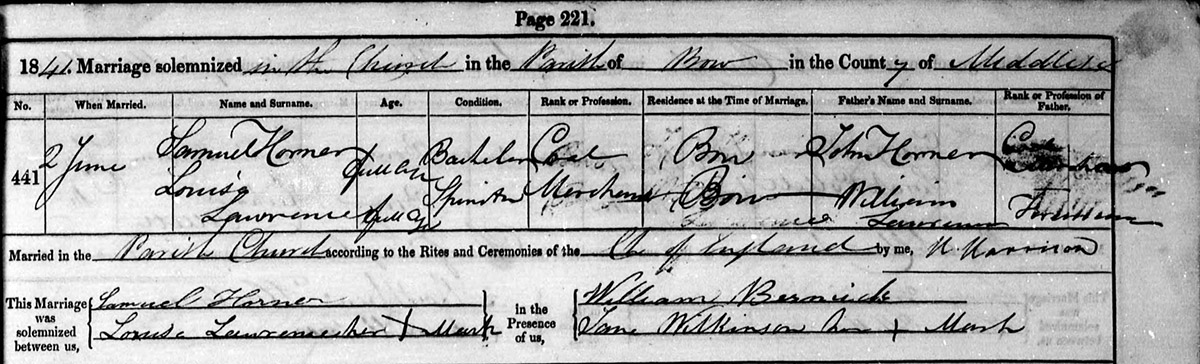 Page 221.
1841. Marriage solemnized in the Church in the Parish of Bow in the County of Middlesex
No. When Married. Name and Surname. Age. Condition. Rank or Profession. Residence at the Time of Marriage. Father's Name and Surname. Rank or Profession of Father.
441 2 June Samuel Horner Full Age Bachelor Coal Bow John Horner Coal
Louisa Lawrence Full Age Spinster Merchant Bow William Lawrence
Married in the Parish Church according to the Rites and Ceremonies of the Ch of England by me, H Harrison
This Marriage was solemnized between us, Samuel Horner in the Presence of us, William
Louisa Lawrence her + Mark Jane Wilkinson her + Mark